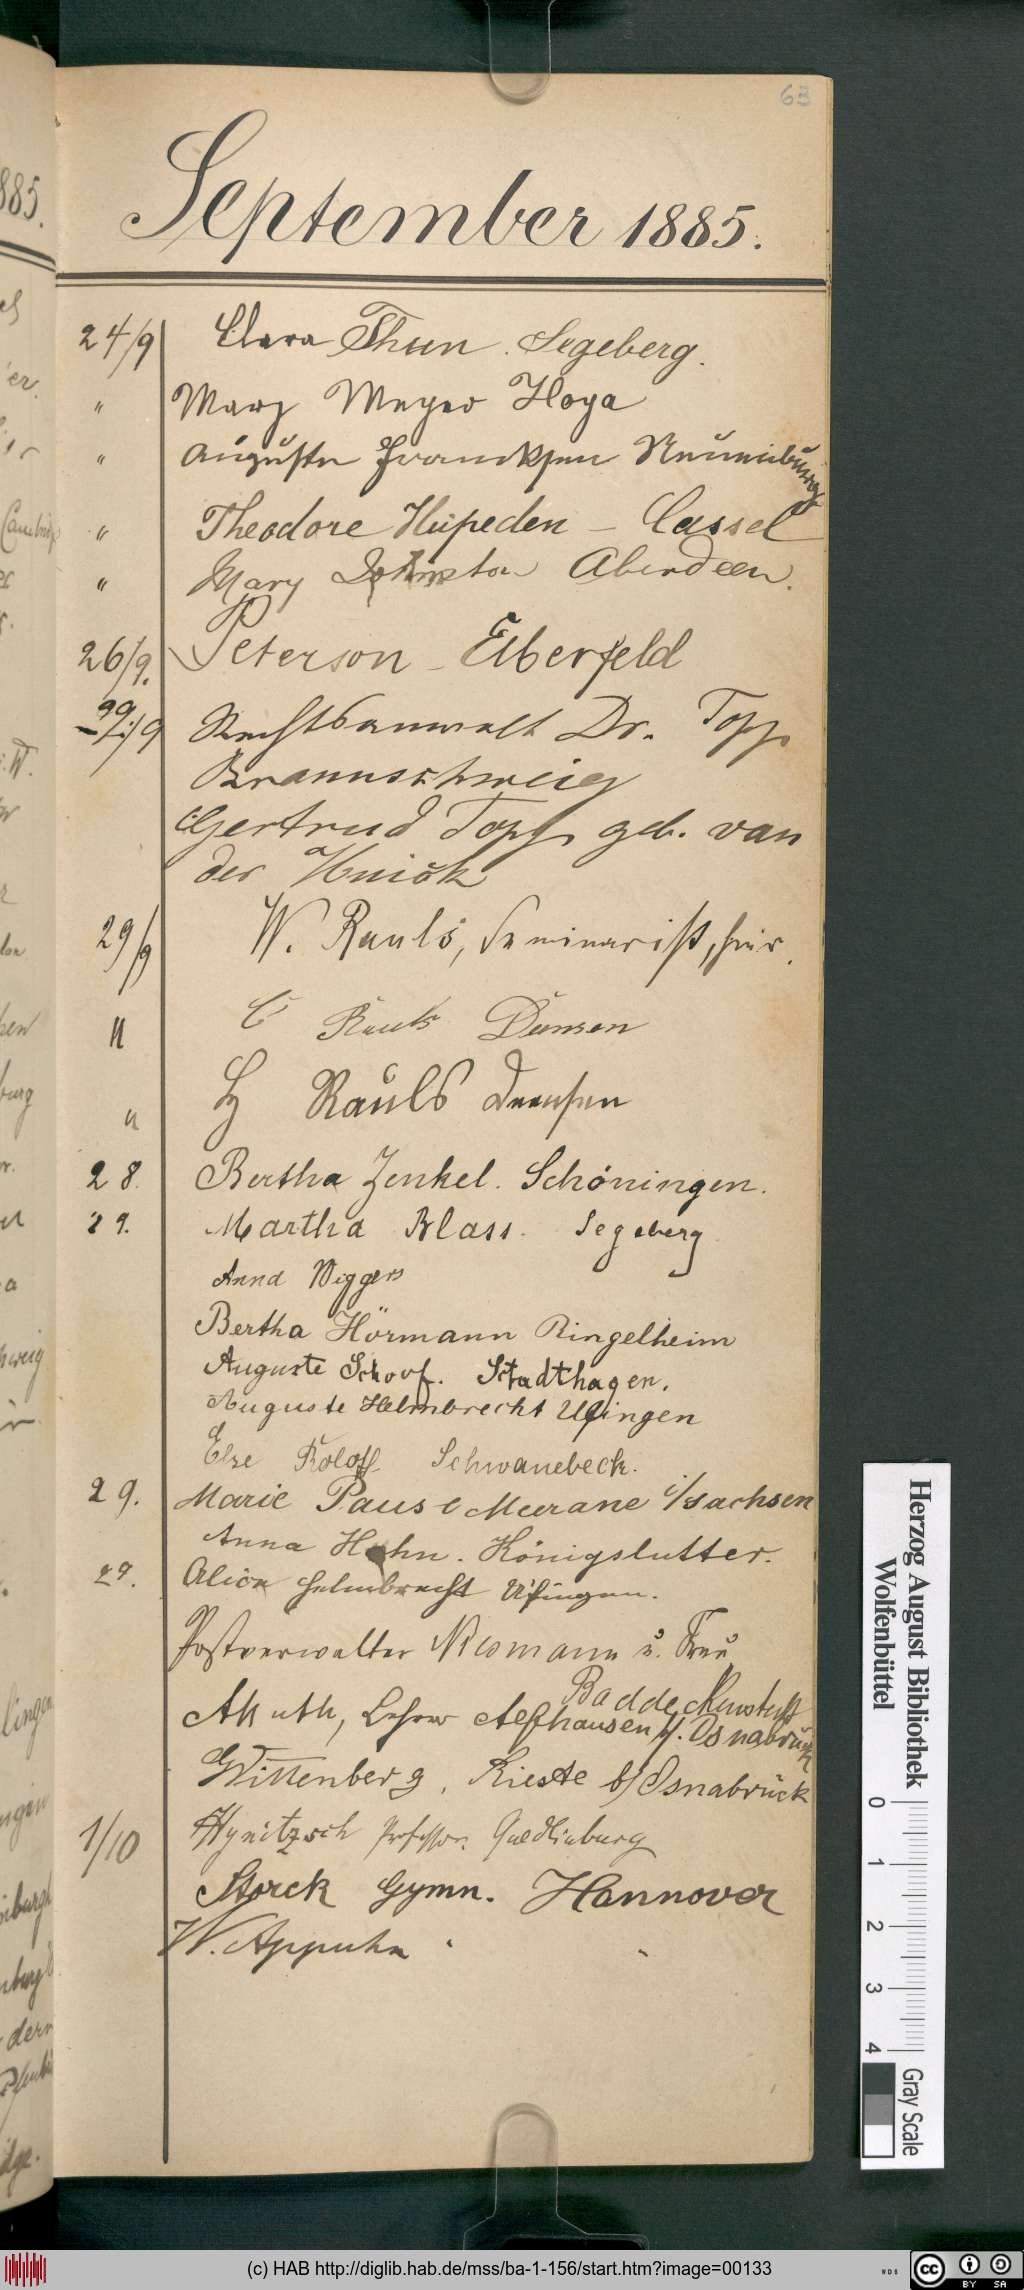 63
September 1885.
24/9 Clara Thun. Segeberg.
" Mary Meyer Hoya
" Auguste Francksen
" Theodore Hüpeden – Cassel
" Mary Johnston Aberdeen.
26/9. Peterson – Elberfeld
/9 Rechtsanwalt Dr. Topp
Braunschweig
Gertrud Topp geb. van
der
29/9 W. Rauls, Seminarist, hier.
" C Rauls Densen
" Rauls Densen
28. Bertha Zenkel. Schöningen.
29. Martha Blass. Segeberg
Anna Wiggers
Bertha Hörmann Ringelheim
Auguste Schoof. Stadthagen.
Auguste Helmbrecht Üfingen
Else Roloff Schwanebeck.
29. Marie Pause Meerane i/Sachsen
Anna Hahn. Königslutter.
29. Alice Helmbrecht Üfingen.
Postverwalter u. Frau
Baddeckenstedt
Lehrer Alfhausen b/. Osnabrück
Wittenberg, Rieste b/ Osnabrück
1/10 Hynitzsch Professor. Quedlinburg
Storck Gymn. Hannover
W. Appuhn " "
Herzog August Bibliothek
Wolfenbüttel
0 1 2 3 4
Gray Scale
(c) HAB http://diglib.hab.de/mss/ba-1-156/start.htm?image=00133
WDB
cc BY SA